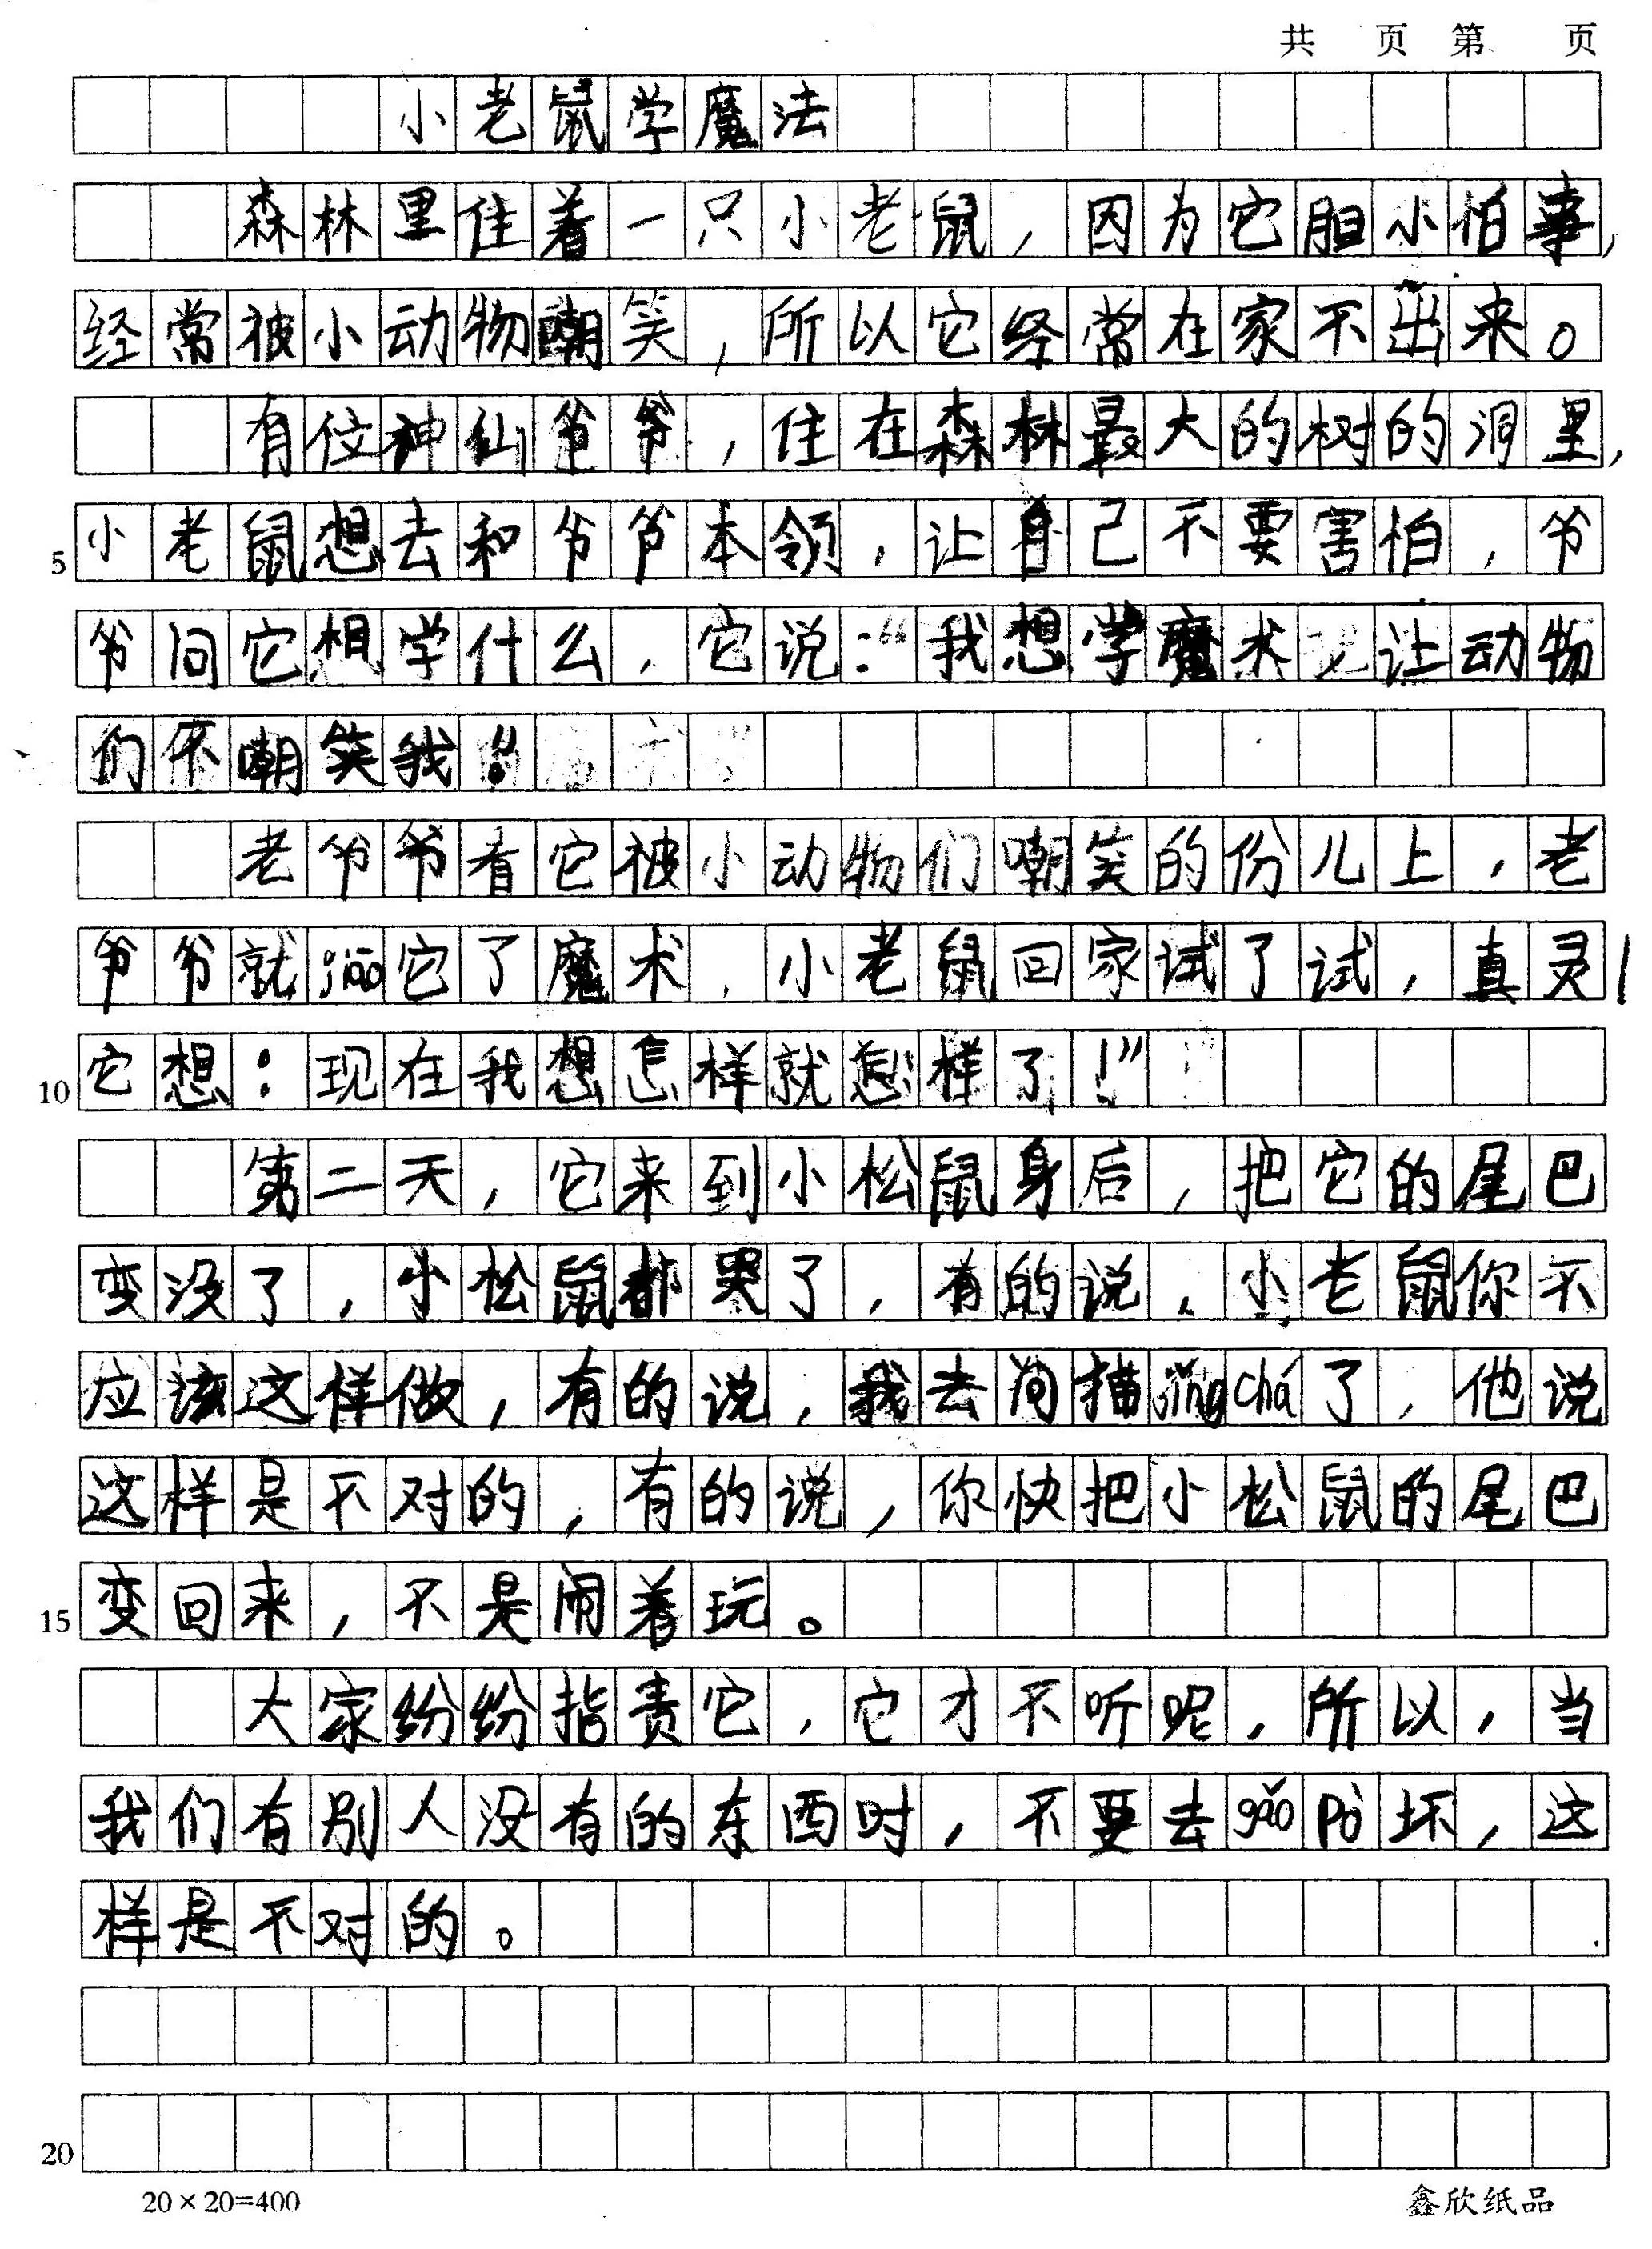 共 页 第 页
小老鼠学魔法
森林里住着一只小老鼠，因为它胆小怕事，
经常被小动物嘲笑，所以它经常在家不出来。
有位神仙爷爷，住在森林最大的树的洞里，
5 小老鼠想去和爷爷本领，让自己不要害怕，爷
爷问它想学什么，它说：“我想学魔术，让动物
们不嘲笑我！”
老爷爷看它被小动物们嘲笑的份儿上，老
爷爷就jiāo它了魔术，小老鼠回家试了试，真灵！
10 它想：现在我想怎样就怎样了！”
第二天，它来到小松鼠身后，把它的尾巴
变没了，小松鼠都哭了，有的说，小老鼠你不
应该这样做，有的说，我去问猫jǐngchá了，他说
这样是不对的，有的说，你快把小松鼠的尾巴
15 变回来，不是闹着玩。
大家纷纷指责它，它才不听呢，所以，当
我们有别人没有的东西时，不要去gǎo pò坏，这
样是不对的。
20
20×20=400 鑫欣纸品